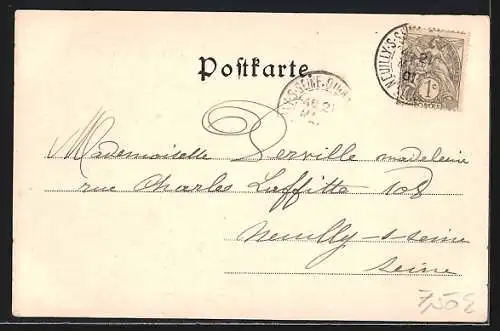 Postkarte.
NEUILLY-S
21
01
1c
SEINE
21
Mademoiselle Derville madeleine
rue Charles Laffitte 108
Neuilly-s-seine
seine
7,50 €